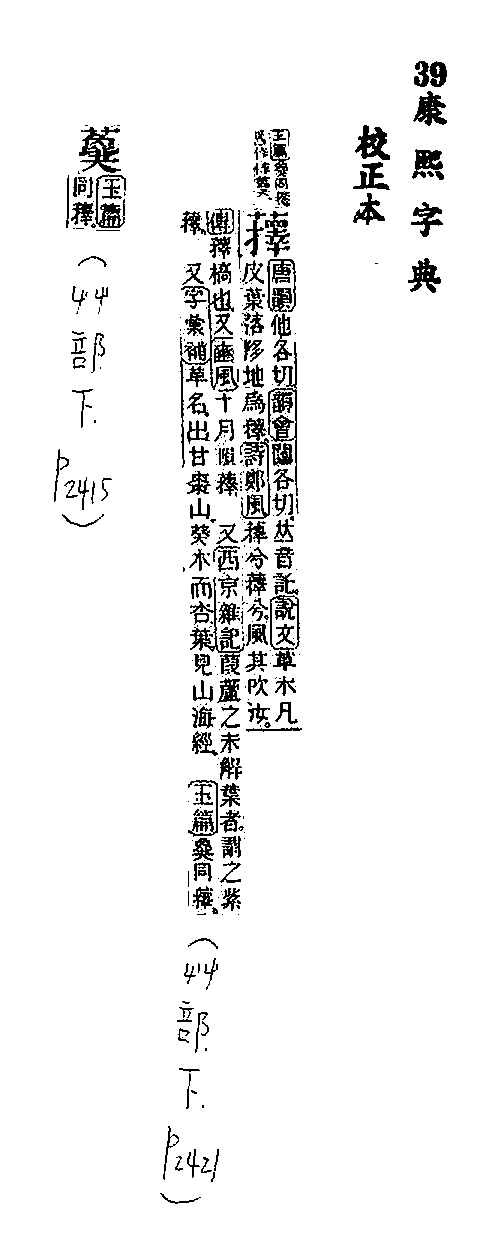 39康熙字典
校正本
蘀
唐韻他各切韻會闥各切𠀤音託說文草木凡
皮葉落陊地爲蘀詩鄭風蘀兮蘀兮風其吹汝
傳蘀槁也又豳風十月隕蘀 又西京雜記葭蘆之未解葉者謂之紫
蘀 又字彙補草名出甘棗山葵本而杏葉見山海經 玉篇同蘀
(艸部下.P2421)
玉篇
同蘀
(艸部下.P2415)